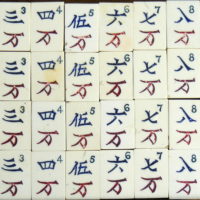 3 4 5 6 7 8
三 四 伍 六 七 八
万 万 万 万 万 万
3 4 5 6 7 8
三 四 伍 六 七 八
万 万 万 万 万 万
3 4 5 6 7 8
三 四 伍 六 七 八
万 万 万 万 万 万
3 4 5 6 7 8
三 四 伍 六 七 八
万 万 万 万 万 万